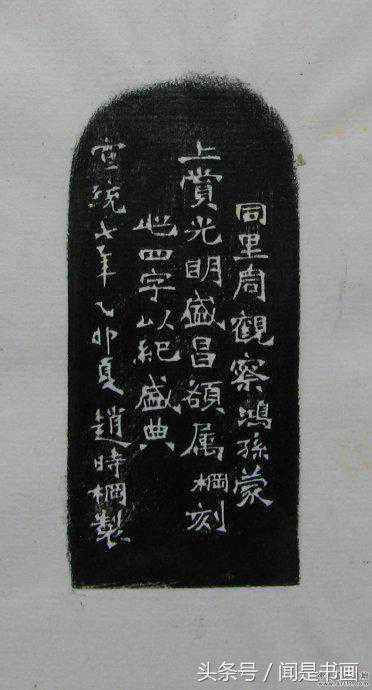 同里周觀察鴻孫蒙
上賞光明盛昌額属棡刻
此四字以紀盛典
宣統七年乙卯夏趙時棡製
头条号/闻是书画